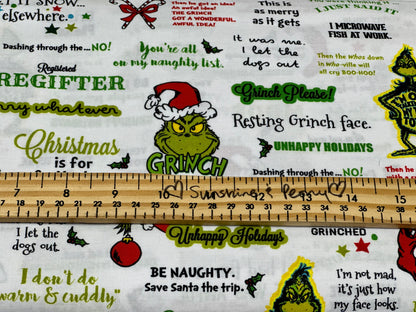 IT SNOW...
elsewhere.
Then he got an idea!
An awful idea!
THE GRINCH
GOT A WONDERFUL,
AWFUL IDEA!
This is
as merry
as it gets
I MICROWAVE
FISH AT WORK.
Dashing through the...NO!
You're all
on my naughty list.
It was me.
I let the
dogs out
Then the Whos down
in Who-ville will
all cry BOO-HOO!
Registered
REGIFTER
Grinch Please!
rry whatever
Resting Grinch face.
Christmas
is for
GRINCH
UNHAPPY HOLIDAYS
Dashing through the...NO!
7 8 9 10 12 14 15
Sunshine & Peggy
17 18 19 20 21 22 23 24 25 26 27 28 29 30 31 32 33 34 35 36 37 38
I let the
dogs out.
Unhappy Holidays
GRINCHED
I don't do
warm & cuddly"
BE NAUGHTY.
Save Santa the trip.
I'm not mad,
it's just how
my face looks.